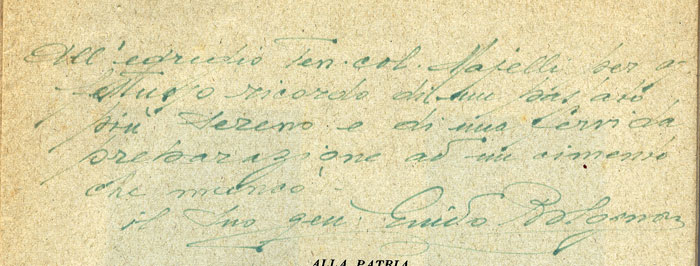 All'egregio Ten. col. Majelli per af-
fettuoso ricordo di un passato
più sereno e di una fervida
preparazione ad un cimento
che mancò
il suo gen. Guido
ALLA PATRIA